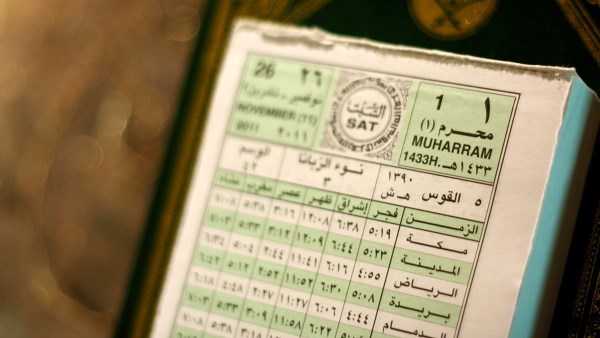 26 ٢٦
نوفمبر - تشرين٢
NOVEMBER (11)
2011 ٢٠١١
السبت
SAT
1 ١
محرم (١)
MUHARRAM
1433H. ١٤٣٣هـ
٥ القوس ١٣٩٠ هـ ش
نوء الزبانا
٣
الوسم
٤٢
الزمن فجر إشراق ظهر عصر مغرب عشاء
مكة ٥:١٩ ٦:٣٨ ١٢:٠٨ ٣:١٦ ٥:٣٨ ٧:٠٨
المدينة ٥:٢٣ ٦:٤٤ ١٢:٠٩ ٣:١٢ ٥:٣٣ ٧:٠٣
الرياض ٤:٥٥ ٦:١٦ ١١:٤١ ٢:٤٤ ٥:٠٤ ٦:٣٤
بريدة ٥:٠٨ ٦:٣٠ ١١:٥٢ ٢:٥٢ ٥:١٢ ٦:٤٢
الدمام ١١:٢٧ ٢:٢٧ ٤:٤٨ ٦:١٨
٦:٢٢ ١١:٥٨ ٣:٠٩ ٥:٣٣ ٧:٠٣